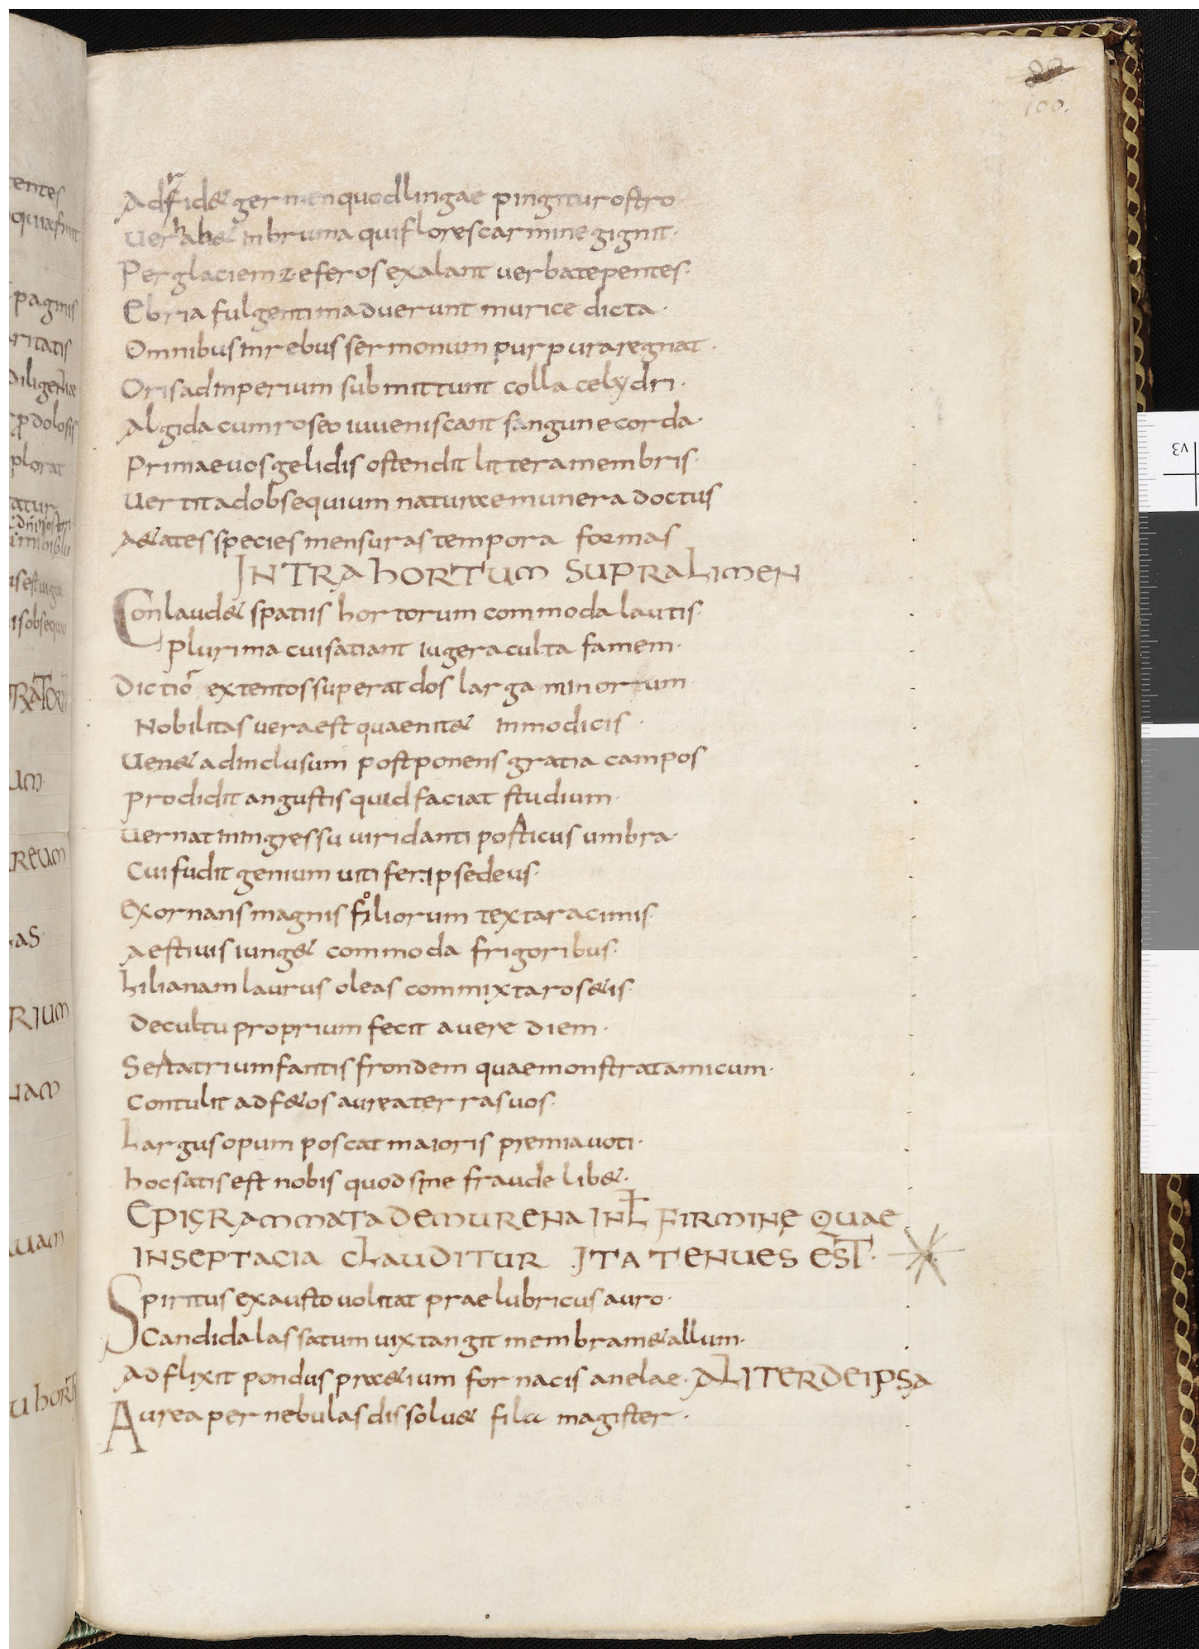 100.
Adfrid& germenquodlingae pingiturostro
uerbab& inbruma quiflorescarminegignit·
Perglaciemzeferosexalant uerbatepentes·
Ebria fulgentimaduerunt murice dicta·
Omnibusinrebus sermonum purpuraregnat·
Orisadinperium submittunt colla celydri·
Algida cumroseo iuueniscant sanguinecorda·
Primaeuosgelidis ostendit litteramembris·
uertitadobsequium naturaemunera doctus
A&ates species mensuras tempora formas
INTRA hORTUm SUPRALImEN
Conlaud& spatiis hortorum commoda lautis·
Plurima cuisatiant iugeraculta famem·
Dictiō extentossuperat dos larga minorum
Nobilitas ueraest quaenit& inmodicis·
uen& adinclusum postponens gratia campos
prodidit angustis quid faciat studium·
uernat iningressu uiridanti posticus umbra·
Cui fudit genium uitiferipsedeus·
Exornans magnis foliorum textaracimis·
Aestiuis iung& commoda frigoribus·
Lilianam laurus oleas commixtaros&is·
Decultu proprium fecit auere diem·
Sertatriumfantis frondem quaemonstratamicum·
Contulit adf&os aureaterrasuos·
Largusopum poscat maioris premiauoti·
hocsatis est nobis quod sine fraude lib&·
EPIGRAmmATADEmURENA INL FIRmINĘ QUAE
INSEPTACIA CLAUDITUR ITA TENUES EST·
Spiritus exausto uolitat praelubricus auro·
Candidalassatum uixtangit membram&allum·
Adflixit pondus pr&ium fornacis anelae· ALITERDEIPSA
Aurea per nebulas dissolu& fila magister·